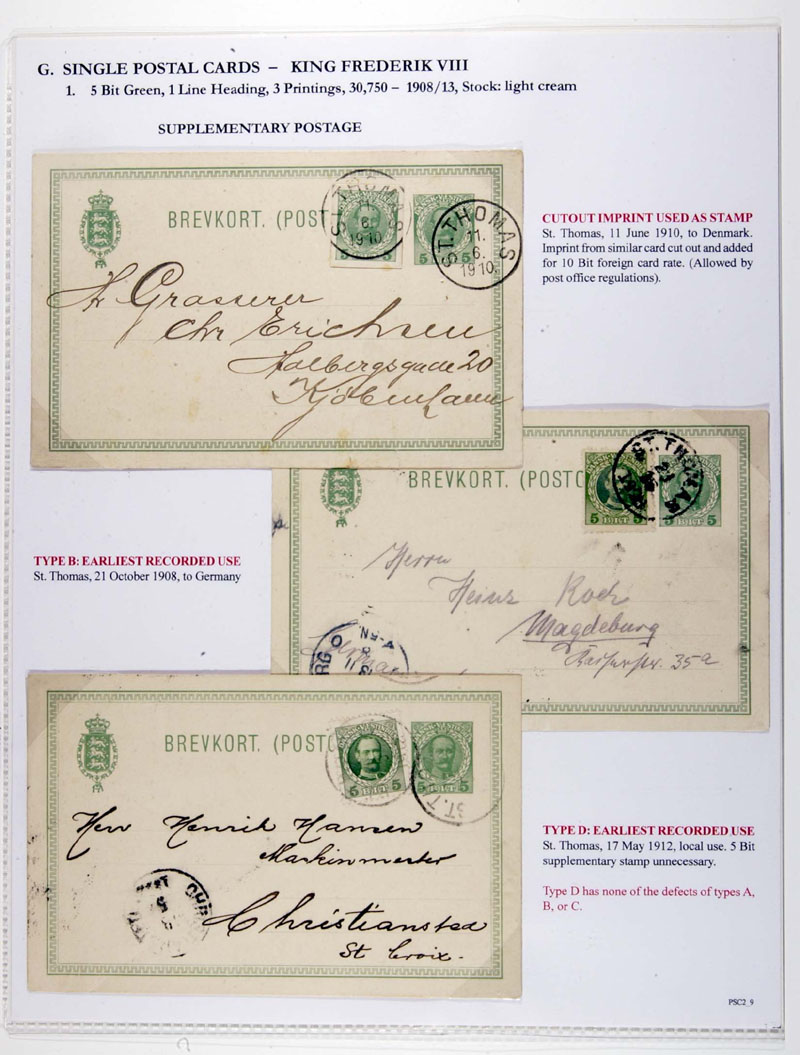 G. SINGLE POSTAL CARDS – KING FREDERIK VIII
1. 5 Bit Green, 1 Line Heading, 3 Printings, 30,750 – 1908/13, Stock: light cream
SUPPLEMENTARY POSTAGE
BREVKORT. (POST
ST. THOMAS
11.
6.
1910
5 5
ST. THOMAS
11.
6.
1910.
Chr Erichsen
Holbergsgade 20
Kjöbenhavn
CUTOUT IMPRINT USED AS STAMP
St. Thomas, 11 June 1910, to Denmark.
Imprint from similar card cut out and added
for 10 Bit foreign card rate. (Allowed by
post office regulations).
BREVKORT. (POSTC
ST. THOMAS
5 BIT 5
5 BIT 5
Herrn
Heinz Koch
Magdeburg
35a
TYPE B: EARLIEST RECORDED USE
St. Thomas, 21 October 1908, to Germany
BREVKORT. (POSTC
5 BIT 5
5 BIT 5
ST. T
Herr Henrik Hansen
Christiansted
St Croix.
TYPE D: EARLIEST RECORDED USE
St. Thomas, 17 May 1912, local use. 5 Bit
supplementary stamp unnecessary.
Type D has none of the defects of types A,
B, or C.
PSC2_9